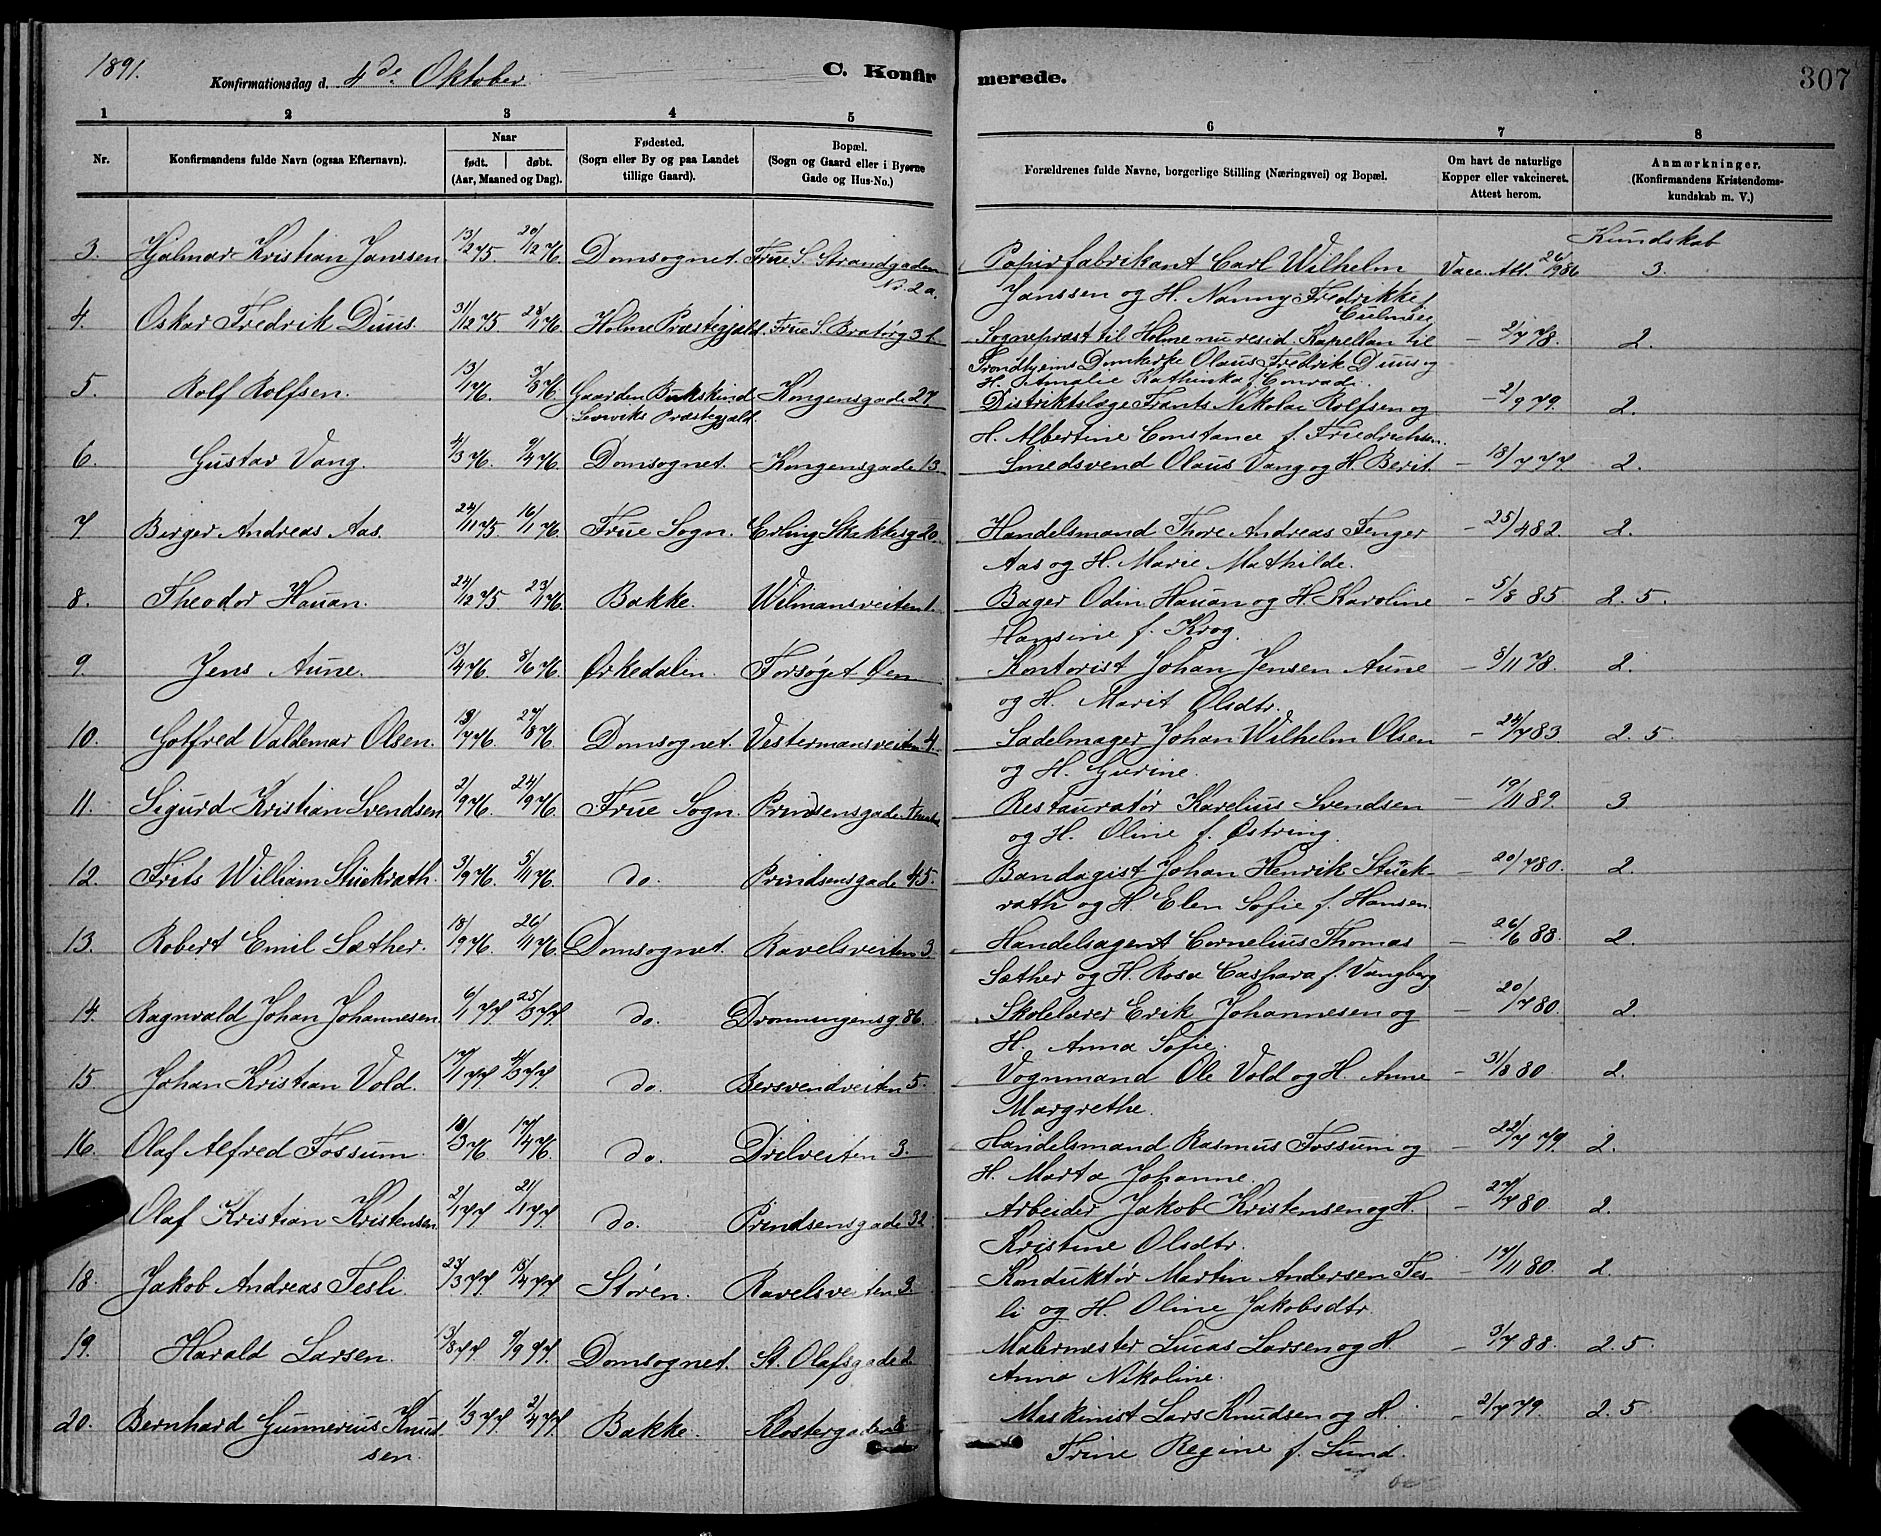 1891.
Konfirmationsdag d. 4de Oktober
C. Konfirmerede.
307
1 2 3 4 5 6 7 8
Nr.
Konfirmandens fulde Navn (ogsaa Efternavn).
Naar
født. døbt.
(Aar, Maaned og Dag).
Fødested.
(Sogn eller By og paa Landet
tillige Gaard).
Bopæl.
(Sogn og Gaard eller i Byerne
Gade og Hus-No.)
Forældrenes fulde Navne, borgerlige Stilling (Næringsvei) og Bopæl.
Om havt de naturlige
Kopper eller vakcineret.
Attest herom.
Anmærkninger.
(Konfirmandens Kristendoms-
kundskab m. V.)
Kundskab
3. Hjalmar Kristian Janssen 13/12 75 20/2 76. Domsognet. Frue S. Strandgaden No. 2a. Papirfabrikant Carl Wilhelm Vacc. Att. 26/9 86 3.
Janssen og H. Nanny Fredrikke f.
4. Oskar Fredrik Duus. 31/12 75 28/1 76. Holme Præstegjald. Frue S. Bratørg 3 b Sognepræst til Holme nu resid Kapellan til — 2/7 78. 2.
Trondhjems Domkirke Olaus Fredrik Duus og
H. Amalie Kathinka f. Conradi.
5. Rolf Rolfsen. 13/1 76. 3/5 76 Gaarden Bukskind Kongensgade 27 Distriktslæge Frants Nikolai Rolfsen og — 2/9 79. 2.
Præstegjald.
H. Albertine Constance f. Friedrichsen.
6. Gustav Vang. 4/3 76. 9/4 76. Domsognet. Kongensgade 13 Smedsvend Olaus Vang og H. Berit. — 18/7 77 2.
7. Birger Andreas Aas. 24/11 75 16/1 76. Frue Sogn. Erling Skakkesg 20 Handelsmand Thore Andreas Fenger — 25/4 82. 2.
Aas og H. Marie Mathilde.
8. Theodor Hauan. 24/12 75 23/1 76. Bakke. Wilmansveiten 1. Bager Odin Hauan og H. Karoline — 5/8 85 2. 5.
Hansine f. Krog.
9. Jens Aune. 13/4 76. 5/6 76. Ørkedalen. Forsøget Øen Kontorist Johan Jensen Aune — 5/11 78. 2.
og H. Marit Olsdtr.
10. Gotfred Valdemar Olsen. 13/7 76. 27/8 76. Domsognet. Vestermansveiten 4. Sadelmager Johan Wilhelm Olsen — 24/7 83 2. 5.
og H. Gurine.
11. Sigurd Kristian Svendsen 2/9 76. 24/9 76. Frue Sogn. Prindsensgade Restauratør Karelius Svendsen — 19/11 89. 3
og H. Oline f. Østring.
12. Frits William Stückrath. 3/9 76. 5/11 76. do. Prindsensgade 45. Bandagist Johan Henrik Stück- — 20/7 80. 2.
rath og H. Elen Sofie f. Hansen.
13. Robert Emil Sæther. 18/9 76. 26/11 76. Domsognet. Ravelsveiten 3 Handelsagent Cornelius Thomas — 26/6 88. 2.
Sæther og H. Rosa Caspara f. Vangberg
14. Ragnvald Johan Johannesen. 6/1 77. 25/3 77. do. Dronningensg 86. Skolelærer Erik Johannesen og — 20/7 80. 2.
H. Anna Sofie.
15. Johan Kristian Vold. 17/1 77 do. Bersvendveiten 5. Vognmand Ole Vold og H. Anne — 31/8 80. 2.
Margrethe.
16. Olaf Alfred Fossum. 18/3 76. 17/4 76. do. Drilveiten 3. Handelsmand Rasmus Fossum og — 22/7 79. 2.
H. Marta Johanne.
Olaf Kristian Kristensen 2/1 77 21/1 77. do. Prindsensgade 32 Arbeider Jakob Kristensen og H. — 27/7 80. 2.
Kristine Olsdtr.
18. Jakob Andreas Tesli. 23/3 77 15/4 77 Støren. Ravelsveiten 3. Konduktør Martin Andersen Tes- — 17/11 80. 2.
li og H. Oline Jakobsdtr.
19. Harald Larsen. 13/8 77. 9/9 77. Domsognet. St. Olafsgade 2 Malermester Lucas Larsen og H. — 3/7 88. 2. 5
Anna Nikoline.
20. Bernhard Gunnerius Knud- 1/3 77 2/4 77 Bakke. Klostergaden Maskinist Lars Knudsen og H. — 2/7 79. 2. 5
sen. Trine Regine f. Lund.